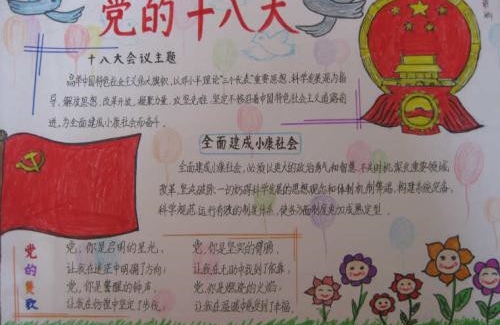 党的十八大
十八大会议主题
高举中国特色社会主义伟大旗帜，以邓小平理论"三个代表"重要思想，科学发展观为指
导，解放思想，改革开放，凝聚力量，攻坚克难，坚定不移沿着中国特色社会主义道路前
进，为全面建成小康社会而奋斗。
全面建成小康社会
全面建成小康社会，必须以更大的政治勇气和智慧，不失时机深化重要领域
改革，坚决破除一切妨碍科学发展的思想观念和体制机制弊端，构建系统完备，
科学规范，运行有效的制度体系，使各方面制度更加成熟定型．
党的赞歌
党，你是启明的星光，
让我在迷茫中明确了方向；
党，你是警醒的钟声，
让我在彷徨中坚定了步伐；
党，你是坚实的臂膀，
让我在无助中找到了依靠；
党，你是燃烧的火焰，
让我在温暖中感受到了幸福．